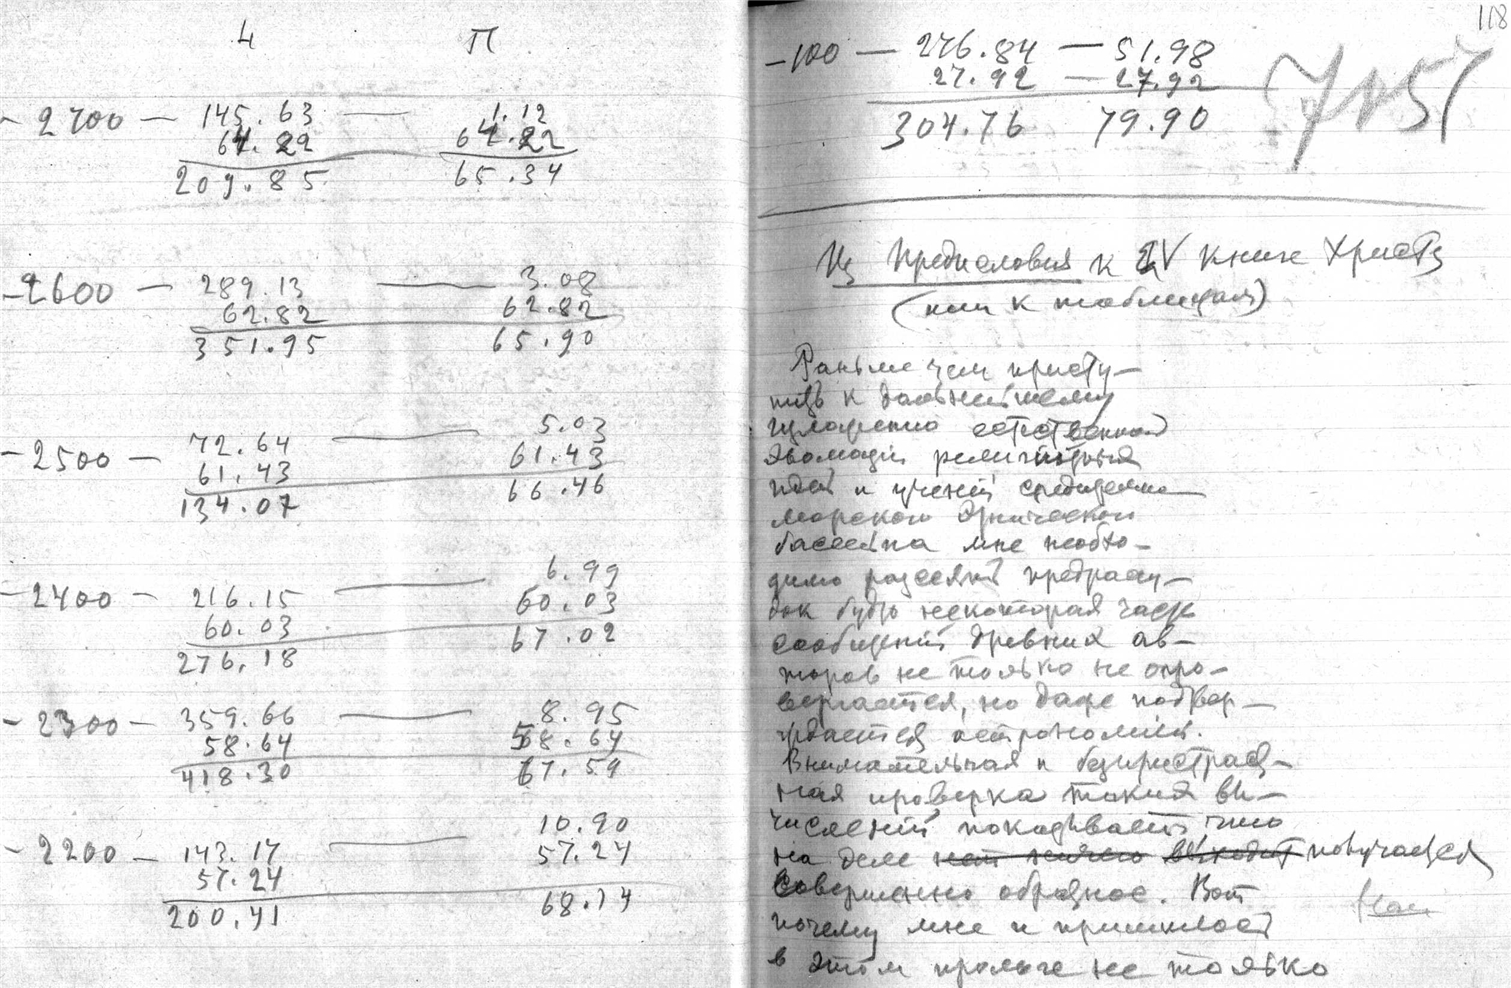 Ч П
- 2700 — 145.63 — 1.12
64.22 64.22
209.85 65.34
- 2600 — 289.13 — 3.08
62.82 62.82
351.95 65.90
- 2500 — 72.64 — 5.03
61.43 61.43
134.07 66.46
- 2400 — 216.15 — 6.99
60.03 60.03
276.18 67.02
- 2300 — 359.66 — 8.95
58.64 58.64
418.30 67.59
- 2200 — 143.17 — 10.90
57.24 57.24
200.41 68.14
118
- 100 — 276.84 — 51.98
27.92 — 27.92
304.76 79.90
Из Предисловия к IV книге Христа
(или к таблицам)
Раньше чем присту-
пить к дальнейшему
изложению естественной
эволюции религиозных
идей и учений средиземно-
морского этнического
бассейна мне необхо-
димо рассеять предрассу-
док будто некоторая часть
сообщений древних ав-
торов не только не опро-
вергается, но даже подтвер-
ждается астрономией.
Внимательная и беспристраст-
ная проверка таких вы-
числений показывает что
на деле выходит получается
совершенно обратное. Вот
почему мне и пришлось
в этом прологе не только